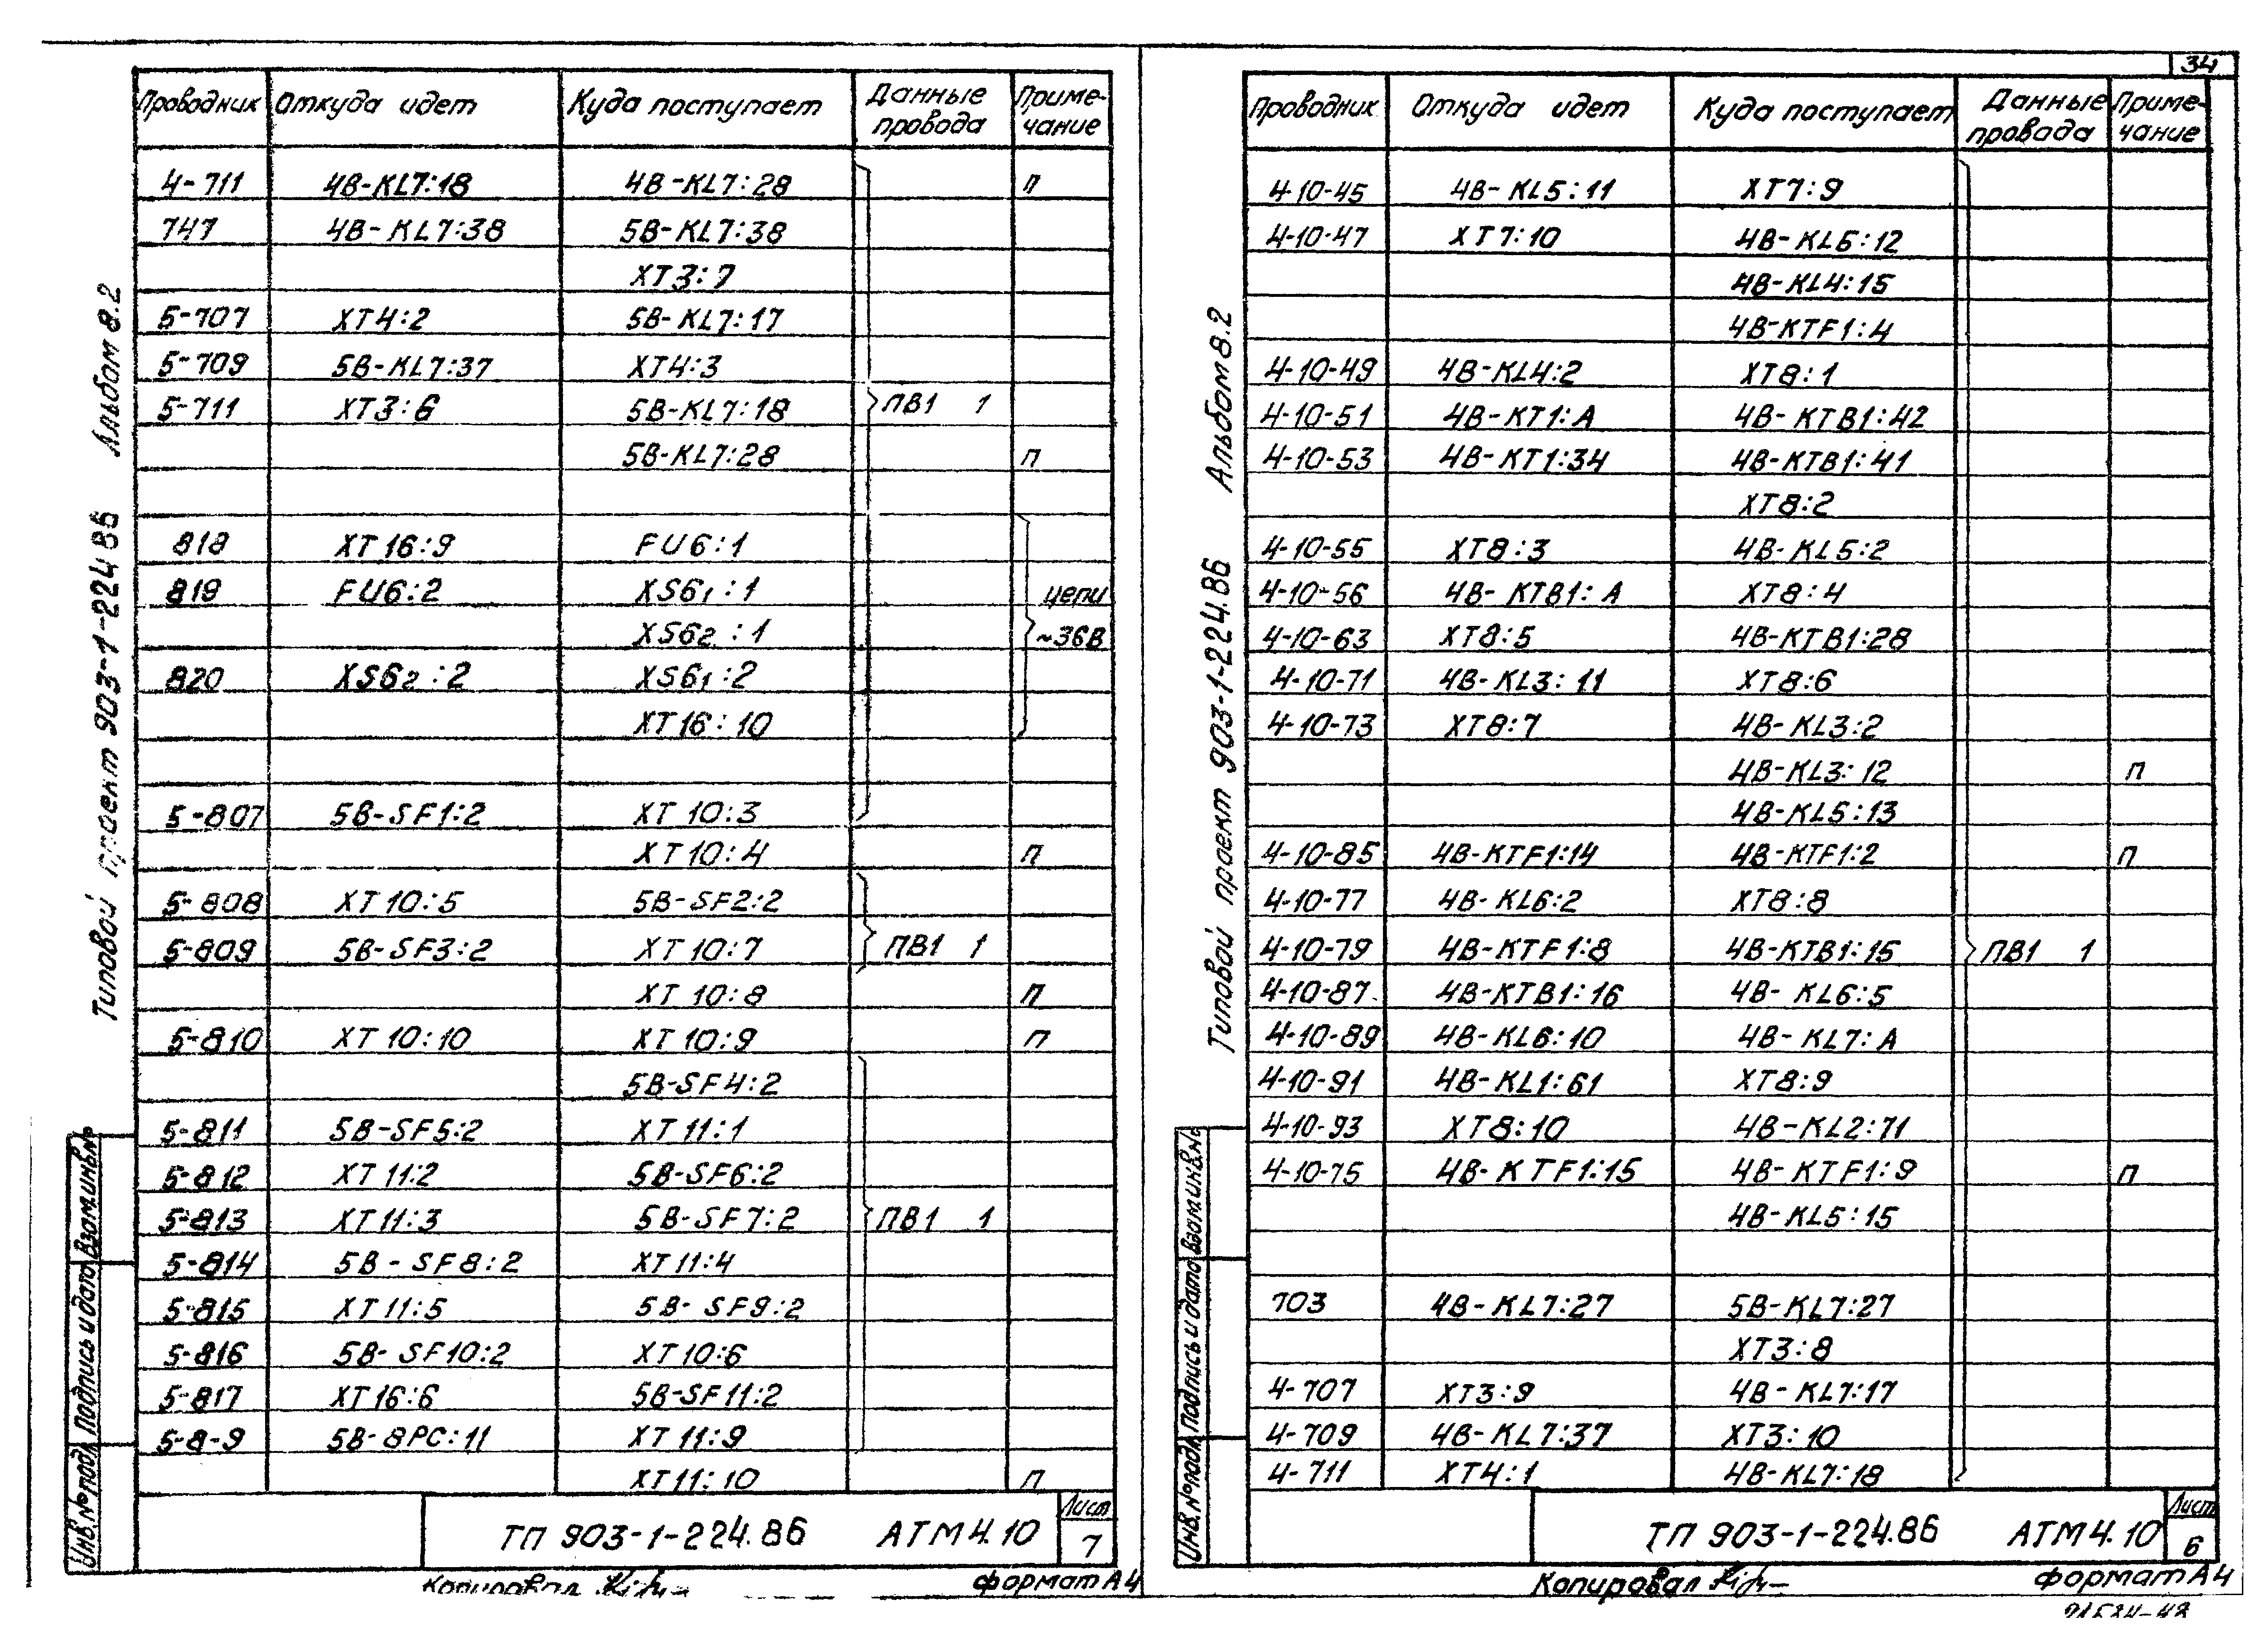 Проводник Откуда идет Куда поступает Данные провода Приме-чание
4-711 4В-KL7:18 4В-KL7:28 п
747 4В-KL7:38 5В-KL7:38
XT3:7
5-707 XT4:2 5В-KL7:17
5-709 5В-KL7:37 XT4:3
5-711 XT3:6 5В-KL7:18 ПВ1 1
5В-KL7:28 п
818 XT16:9 FU6:1
819 FU6:2 XS6₁:1 цепи
XS6₂:1 ~36В
820 XS6₂:2 XS6₁:2
XT16:10
5-807 5В-SF1:2 XT10:3
XT10:4 п
5-808 XT10:5 5В-SF2:2
5-809 5В-SF3:2 XT10:7 ПВ1 1
XT10:8 п
5-810 XT10:10 XT10:9 п
5В-SF4:2
5-811 5В-SF5:2 XT11:1
5-812 XT11:2 5В-SF6:2
5-813 XT11:3 5В-SF7:2 ПВ1 1
5-814 5В-SF8:2 XT11:4
5-815 XT11:5 5В-SF9:2
5-816 5В-SF10:2 XT10:6
5-817 XT16:6 5В-SF11:2
5-8-9 5В-8РС:11 XT11:9
XT11:10 п
ТП 903-1-224.86 АТМ4.10 Лист 7
Копировал
формат А4
Типовой проект 903-1-224 86 Альбом 8.2
Инв.№подл. Подпись и дата Взам.инв.№
34
Проводник Откуда идет Куда поступает Данные провада Приме-чание
4-10-45 4В-KL5:11 XT7:9
4-10-47 XT7:10 4В-KL5:12
4В-KL4:15
4В-KTF1:4
4-10-49 4В-KL4:2 XT8:1
4-10-51 4В-KT1:A 4В-KTB1:42
4-10-53 4В-KT1:34 4В-KTB1:41
XT8:2
4-10-55 XT8:3 4В-KL5:2
4-10-56 4В-KTB1:A XT8:4
4-10-63 XT8:5 4В-KTB1:28
4-10-71 4В-KL3:11 XT8:6
4-10-73 XT8:7 4В-KL3:2
4В-KL3:12 п
4В-KL5:13
4-10-85 4В-KTF1:14 4В-KTF1:2 п
4-10-77 4В-KL6:2 XT8:8
4-10-79 4В-KTF1:8 4В-KTB1:15 ПВ1 1
4-10-87 4В-KTB1:16 4В-KL6:5
4-10-89 4В-KL6:10 4В-KL7:A
4-10-91 4В-KL1:61 XT8:9
4-10-93 XT8:10 4В-KL2:71
4-10-75 4В-KTF1:15 4В-KTF1:9 п
4В-KL5:15
703 4В-KL7:27 5В-KL7:27
XT3:8
4-707 XT3:9 4В-KL7:17
4-709 4В-KL7:37 XT3:10
4-711 XT4:1 4В-KL7:18
ТП 903-1-224.86 АТМ4.10 Лист 6
Копировал
формат А4
Типовой проект 903-1-224.86 Альбом 8.2
Инв.№подл. Подпись и дата Взам.инв.№